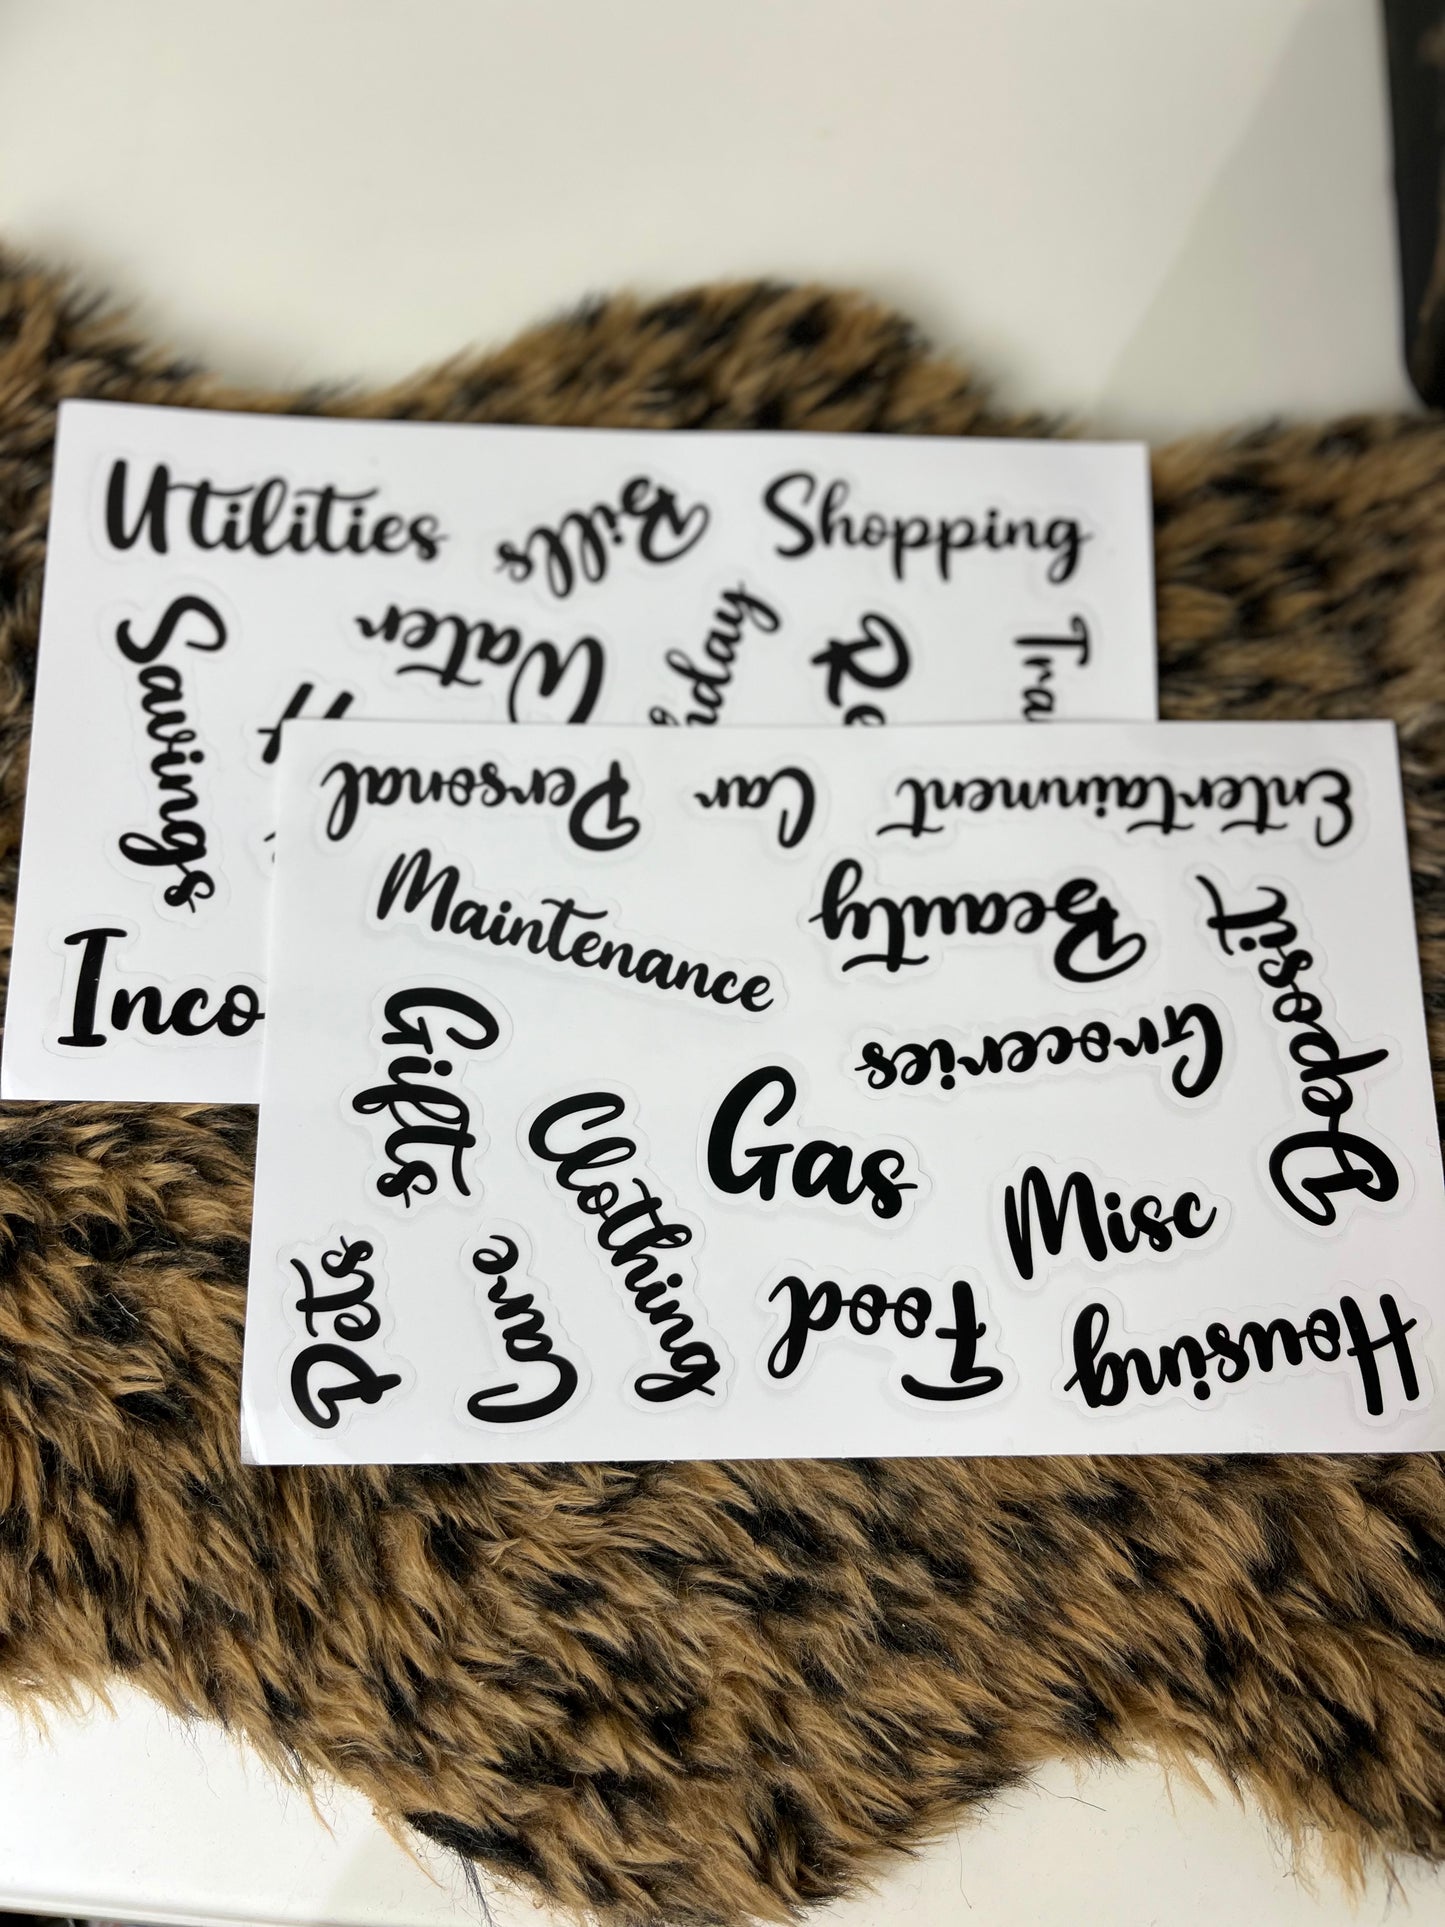 Utilities
Bills
Shopping
Savings
Water
nday
Re
Tra
H
Inco
Personal
Car
Entertainment
Maintenance
Beauty
Deposit
Gifts
Groceries
Gas
Clothing
Misc
Pets
Care
Food
Housing